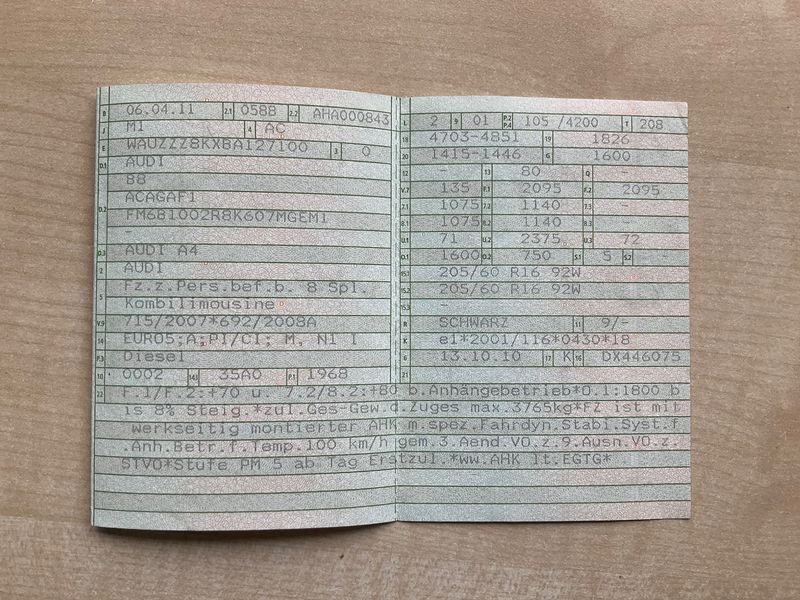 B 06.04.11 2.1 0588 2.2 AHA000843
J M1 4 AC
E WAUZZZ8KXBA127100 3 0
D.1 AUDI
B8
D.2 ACAGAF1
FM6B1002R8K607MGEM1
-
D.3 AUDI A4
2 AUDI
5 Fz.z.Pers.bef.b. 8 Spl.
Kombilimousine
V.9 715/2007*692/2008A
14 EURO5;A;PI/CI; M, N1 I
P.3 Diesel
10 0002 14.1 35A0 P.1 1968
L 2 9 01 P.2 P.4 105 /4200 T 208
18 4703-4851 19 1826
20 1415-1446 G 1600
12 - 13 80 Q -
V.7 135 F.1 2095 F.2 2095
7.1 1075 7.2 1140 7.3 -
8.1 1075 8.2 1140 8.3 -
U.1 71 U.2 2375 U.3 72
O.1 1600 O.2 750 S.1 5 S.2 -
15.1 205/60 R16 92W
15.2 205/60 R16 92W
15.3 -
R SCHWARZ 11 9/-
K e1*2001/116*0430*18
6 13.10.10 17 K 16 DX446075
21
22 F.1/F.2:+70 u. 7.2/8.2:+80 b.Anhängebetrieb*O.1:1800 b
is 8% Steig.*zul.Ges-Gew.d.Zuges max.3765kg*FZ ist mit
werkseitig montierter AHK m.spez.Fahrdyn.Stabi.Syst.f
.Anh.Betr.f.Temp.100 km/h gem.3.Aend.VO.z.9.Ausn.VO.z.
STVO*Stufe PM 5 ab Tag Erstzul.*ww.AHK lt.EGTG*